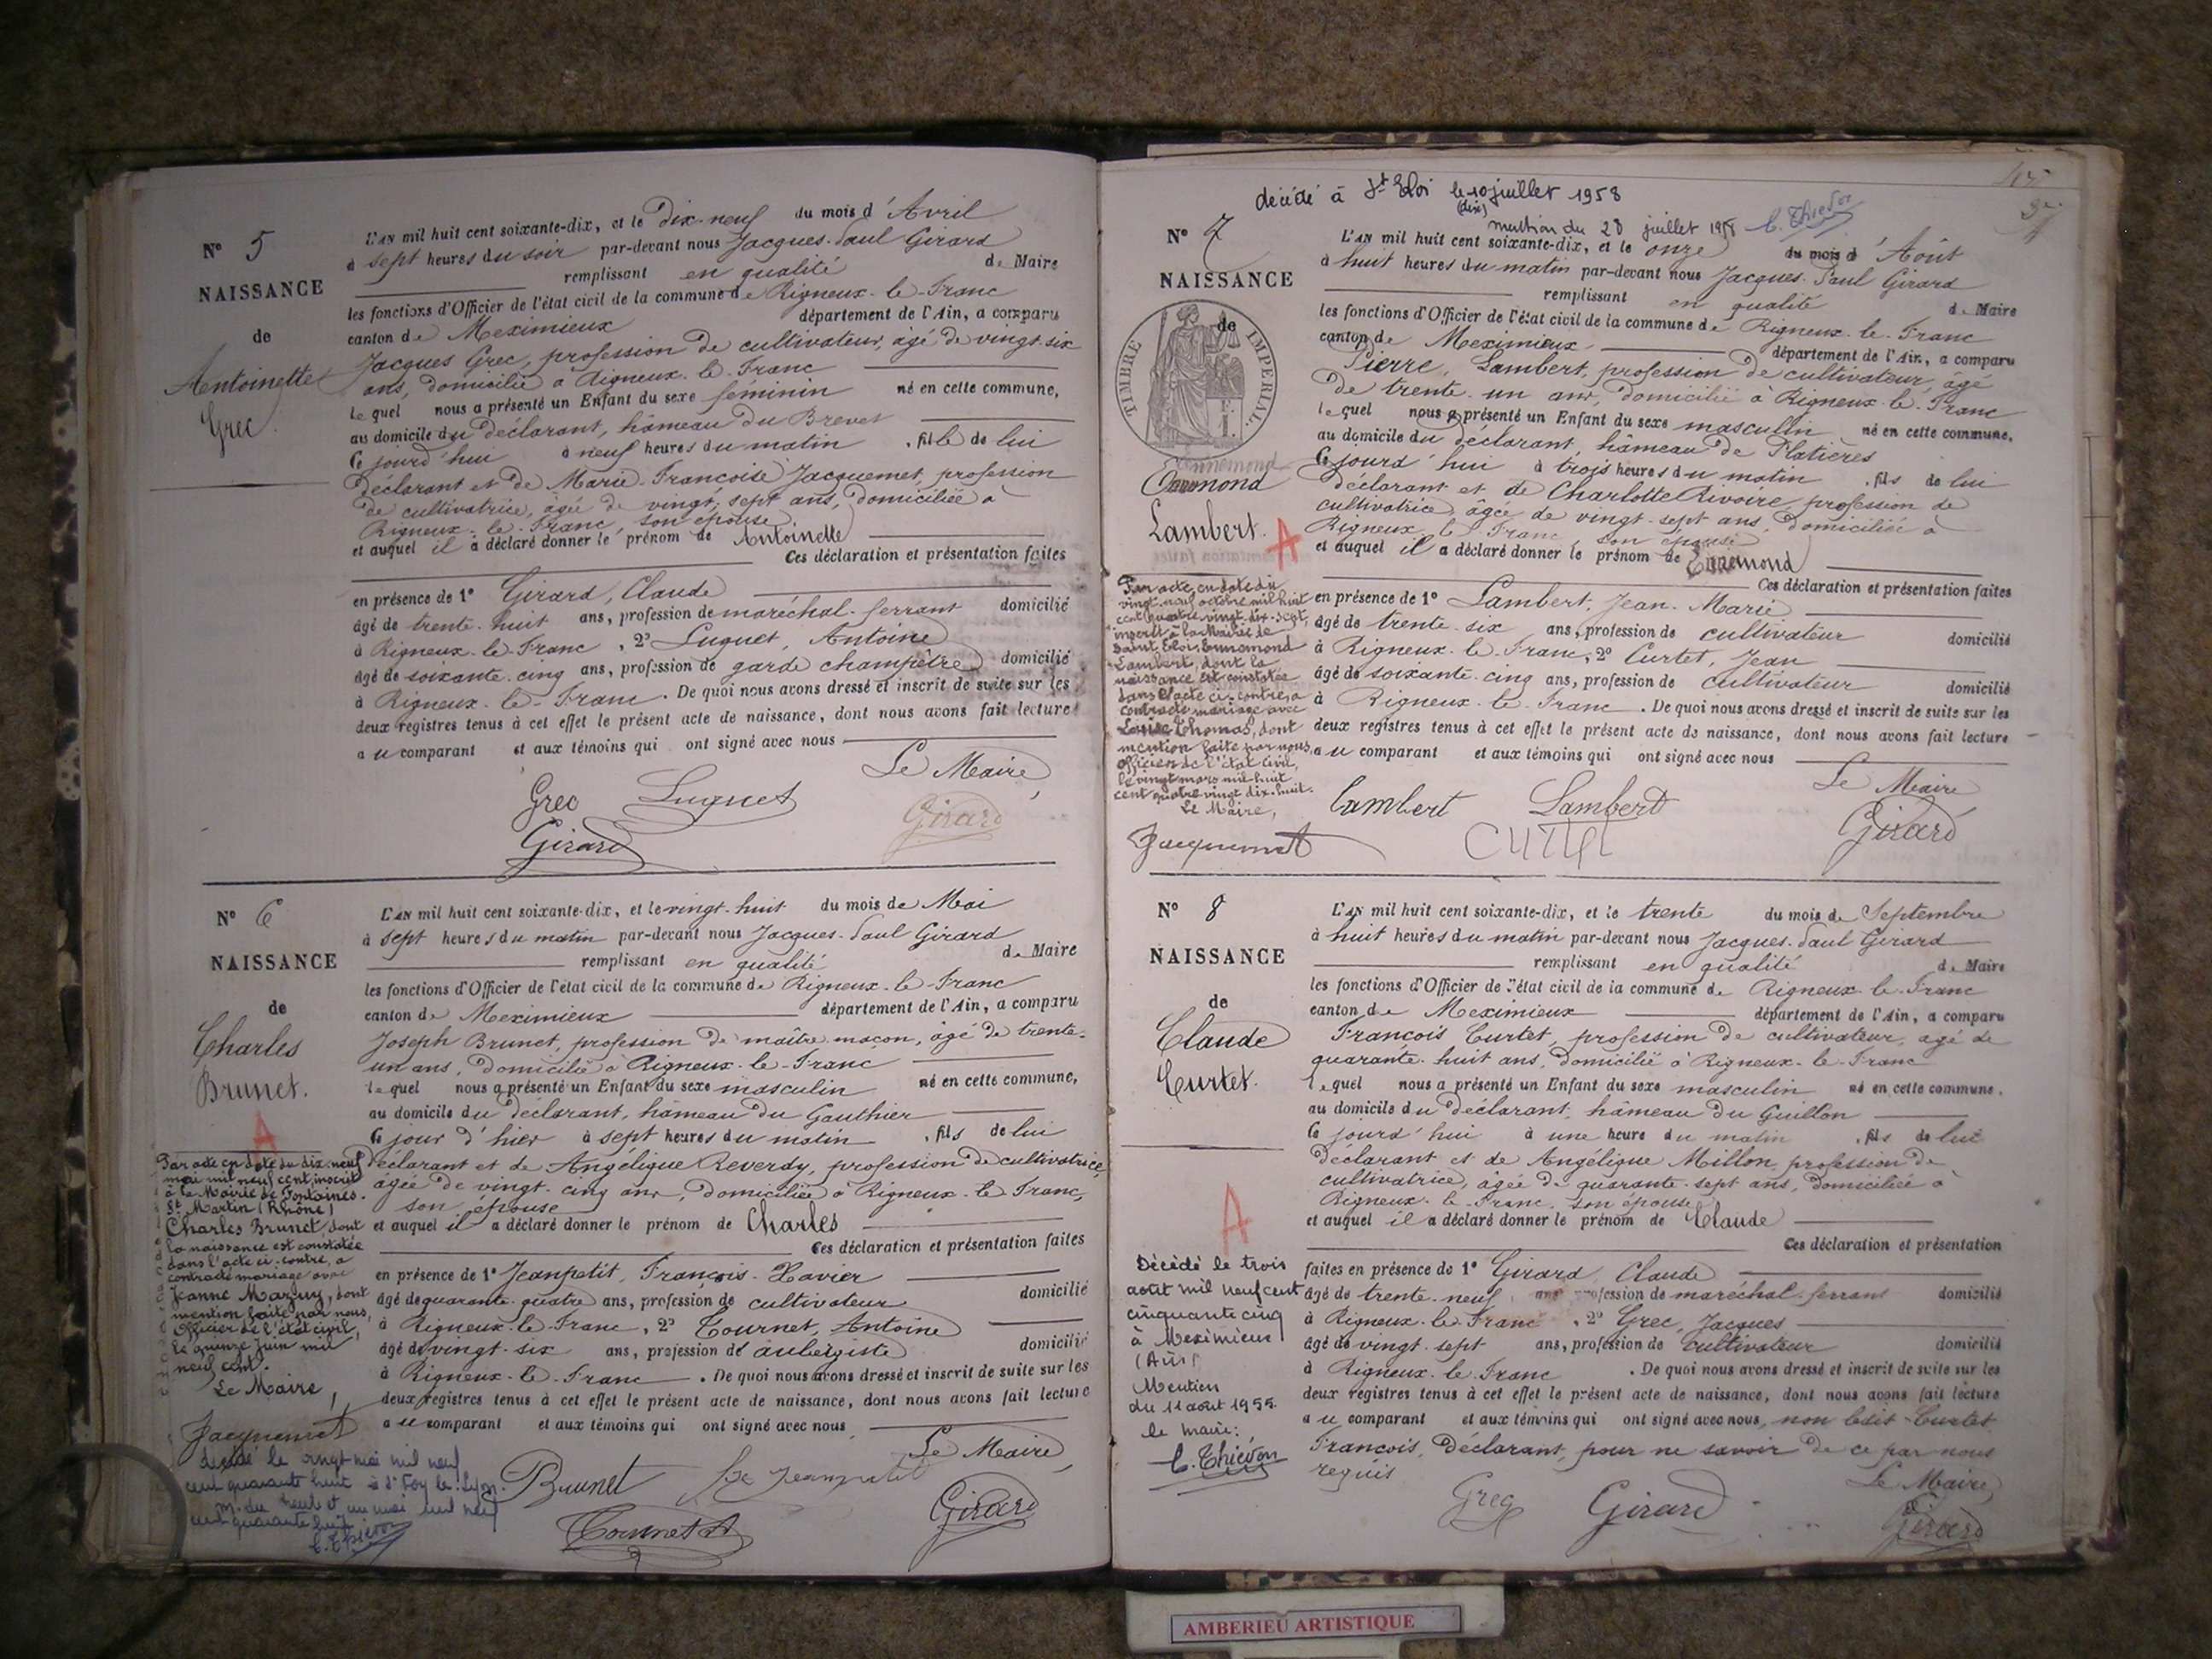 Nº 5
NAISSANCE
de
Antoinette
Grec
L'AN mil huit cent soixante-dix, et le dix-neuf du mois d'Avril
à sept heures du soir par-devant nous Jacques-Paul Girard
remplissant en qualité de Maire
les fonctions d'Officier de l'état civil de la commune de Rigneux-le-Franc
canton de Meximieux département de l'Ain, a comparu
Jacques Grec, profession de cultivateur, âgé de vingt-six
ans, domicilié à Rigneux-le-Franc
lequel nous a présenté un Enfant du sexe féminin né en cette commune,
au domicile du déclarant, hâmeau du Brevet
Ce jourd'hui à neuf heures du matin, fille de lui
déclarant et de Marie-Françoise Jacquemet, profession
de cultivatrice, âgée de vingt-sept ans, domiciliée à
Rigneux-le-Franc, son épouse
et auquel il a déclaré donner le prénom de Antoinette
Ces déclaration et présentation faites
en présence de 1º Girard, Claude
âgé de trente-huit ans, profession de maréchal-ferrant domicilié
à Rigneux-le-Franc, 2º Luguet, Antoine
âgé de soixante-cinq ans, profession de garde champêtre domicilié
à Rigneux-le-Franc. De quoi nous avons dressé et inscrit de suite sur les
deux registres tenus à cet effet le présent acte de naissance, dont nous avons fait lecture
au comparant et aux témoins qui ont signé avec nous
Le Maire,
Grec Luguet
Girard Girard
Nº 6
NAISSANCE
de
Charles
Brunet.
A
Par acte en date du dix-neuf
mai mil neuf cent, inscrit
à la Mairie de Fontaines-
St Martin (Rhône)
Charles Brunet, dont
la naissance est constatée
dans l'acte ci-contre, a
contracté mariage avec
Jeanne Marguy, dont
mention faite par nous,
Officier de l'état civil,
le quinze juin mil
neuf cent.
Le Maire,
Jacquemet
décédé le vingt mai mil neuf
cent quarante huit à Ste Foy les Lyon.
m. du trente et un mai mil neuf
cent quarante huit
C. Thiévon
L'AN mil huit cent soixante-dix, et le vingt-huit du mois de Mai
à sept heures du matin par-devant nous Jacques-Paul Girard
remplissant en qualité de Maire
les fonctions d'Officier de l'état civil de la commune de Rigneux-le-Franc
canton de Meximieux département de l'Ain, a comparu
Joseph Brunet, profession de maître maçon, âgé de trente-
un ans, domicilié à Rigneux-le-Franc
lequel nous a présenté un Enfant du sexe masculin né en cette commune,
au domicile du déclarant, hâmeau du Gauthier
Ce jour d'hier à sept heures du matin, fils de lui
déclarant et de Angélique Reverdy, profession de cultivatrice,
âgée de vingt-cinq ans, domiciliée à Rigneux-le-Franc,
son épouse
et auquel il a déclaré donner le prénom de Charles
Ces déclaration et présentation faites
en présence de 1º Jeanpetit, François-Xavier
âgé de quarante-quatre ans, profession de cultivateur domicilié
à Rigneux-le-Franc, 2º Tournet, Antoine
âgé de vingt-six ans, profession de aubergiste domicilié
à Rigneux-le-Franc. De quoi nous avons dressé et inscrit de suite sur les
deux registres tenus à cet effet le présent acte de naissance, dont nous avons fait lecture
au comparant et aux témoins qui ont signé avec nous
Le Maire,
Brunet Jeanpetit
Tournet A Girard
décédé à St Eloi le 10 juillet 1958
(dix)
mention du 28 juillet 1958 C. Thiévon
Nº 7
NAISSANCE
de
TIMBRE IMPERIAL
Ennemond
Lambert.
A
Par acte en date du
vingt-neuf octobre mil huit
cent quatre-vingt-dix-sept,
inscrit à la Mairie de
Saint-Eloi, Ennemond
Lambert, dont la
naissance est constatée
dans l'acte ci-contre, a
contracté mariage avec
Louise Thomas, dont
mention faite par nous,
Officier de l'état civil,
le vingt mars mil huit
cent quatre-vingt-dix-huit.
Le Maire,
Jacquemet
L'AN mil huit cent soixante-dix, et le onze du mois d'Août
à huit heures du matin par-devant nous Jacques-Paul Girard
remplissant en qualité de Maire
les fonctions d'Officier de l'état civil de la commune de Rigneux-le-Franc
canton de Meximieux département de l'Ain, a comparu
Pierre Lambert, profession de cultivateur, âgé
de trente-un ans, domicilié à Rigneux-le-Franc
lequel nous a présenté un Enfant du sexe masculin né en cette commune,
au domicile du déclarant, hâmeau de Platières
Ce jourd'hui à trois heures du matin, fils de lui
déclarant et de Charlotte Rivoire, profession de
cultivatrice, âgée de vingt-sept ans, domiciliée à
Rigneux-le-Franc, son épouse
et auquel il a déclaré donner le prénom de Ennemond
Ces déclaration et présentation faites
en présence de 1º Lambert, Jean-Marie
âgé de trente-six ans, profession de cultivateur domicilié
à Rigneux-le-Franc, 2º Curtet, Jean
âgé de soixante-cinq ans, profession de cultivateur domicilié
à Rigneux-le-Franc. De quoi nous avons dressé et inscrit de suite sur les
deux registres tenus à cet effet le présent acte de naissance, dont nous avons fait lecture
au comparant et aux témoins qui ont signé avec nous
Le Maire
Lambert Lambert
Girard
Nº 8
NAISSANCE
de
Claude
Curtet.
A
Décédé le trois
août mil neuf cent
cinquante cinq
à Meximieux
(Ain)
Mention
du 11 août 1955.
le maire:
C. Thiévon
L'AN mil huit cent soixante-dix, et le trente du mois de Septembre
à huit heures du matin par-devant nous Jacques-Paul Girard
remplissant en qualité de Maire
les fonctions d'Officier de l'état civil de la commune de Rigneux-le-Franc
canton de Meximieux département de l'Ain, a comparu
François Curtet, profession de cultivateur, âgé de
quarante-huit ans, domicilié à Rigneux-le-Franc
lequel nous a présenté un Enfant du sexe masculin né en cette commune,
au domicile du déclarant, hâmeau du Guillon
Ce jourd'hui à une heure du matin, fils de lui
déclarant et de Angélique Millon, profession de
cultivatrice, âgée de quarante-sept ans, domiciliée à
Rigneux-le-Franc, son épouse
et auquel il a déclaré donner le prénom de Claude
Ces déclaration et présentation
faites en présence de 1º Girard, Claude
âgé de trente-neuf ans, profession de maréchal-ferrant domicilié
à Rigneux-le-Franc, 2º Grec, Jacques
âgé de vingt-sept ans, profession de cultivateur domicilié
à Rigneux-le-Franc. De quoi nous avons dressé et inscrit de suite sur les
deux registres tenus à cet effet le présent acte de naissance, dont nous avons fait lecture
au comparant et aux témoins qui ont signé avec nous, non ledit Curtet
François, déclarant, pour ne savoir de ce par nous
requis
Le Maire,
Grec Girard
Girard
AMBERIEU ARTISTIQUE